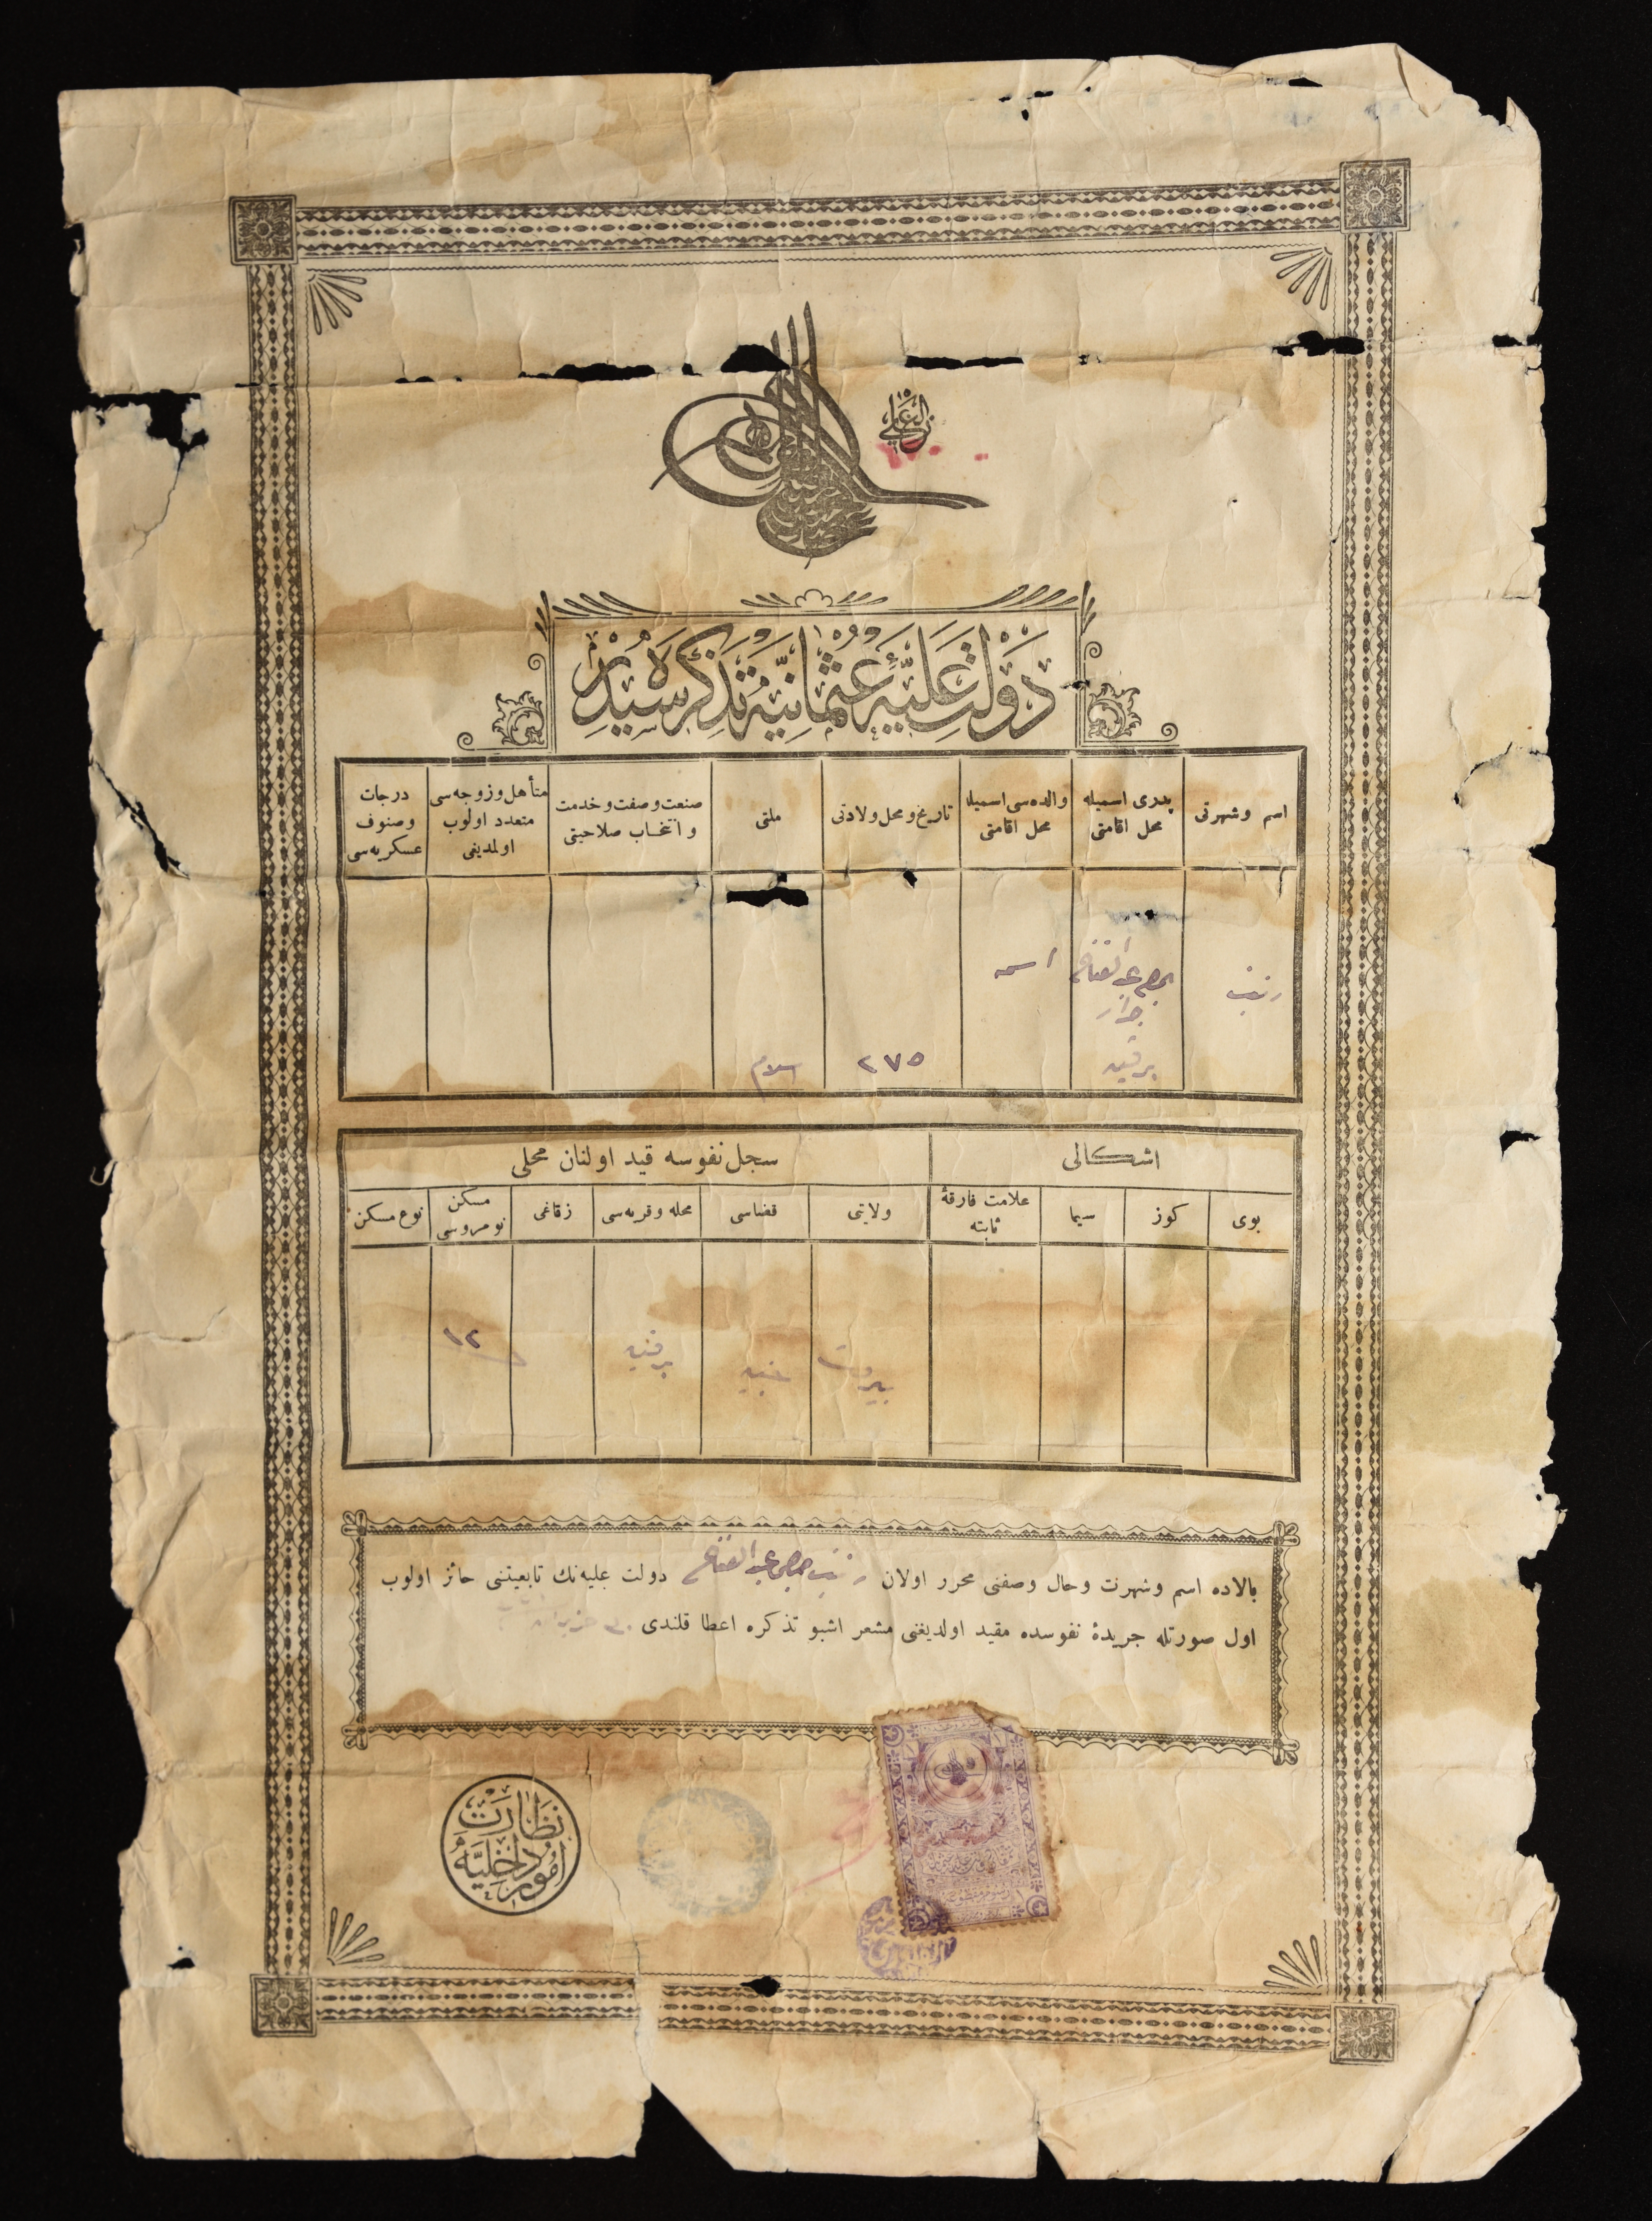 الغازی
دولت علیهٔ عثمانیه تذکره سیدر
اسم وشهرتی
پدری اسمیله محل اقامتی
والده سی اسمیله محل اقامتی
تاریخ ومحل ولادتی
ملتی
صنعت وصفت وخدمت وانتخاب صلاحیتی
متأهل وزوجه سی متعدد اولوب اولمدیغی
درجات وصنوف عسکریه سی
زینب
عبد الفتاح
جرار
برقین
اسمه
٢٧٥
اسلام
اشکالی
سجل نفوسه قید اولنان محلی
بوی
کوز
سیما
علامت فارقهٔ ثابته
ولایتی
قضاسی
محله وقریه سی
زقاغی
مسکن نومروسی
نوع مسکن
بیروت
جنین
برقین
١٢
بالاده اسم وشهرت وحال وصفتی محرر اولان زینب عبد الفتاح دولت علیه نك تابعیتنی حائز اولوب
اول صورتله جریدهٔ نفوسده مقید اولدیغنی مشعر اشبو تذکره اعطا قلندی
نظارت
امور داخلیه